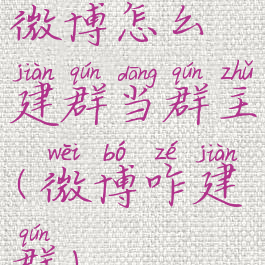 微博怎么
jiàn qún dāng qún zhǔ
建群当群主
wēi bó zé jiàn
(微博咋建
qún
群)